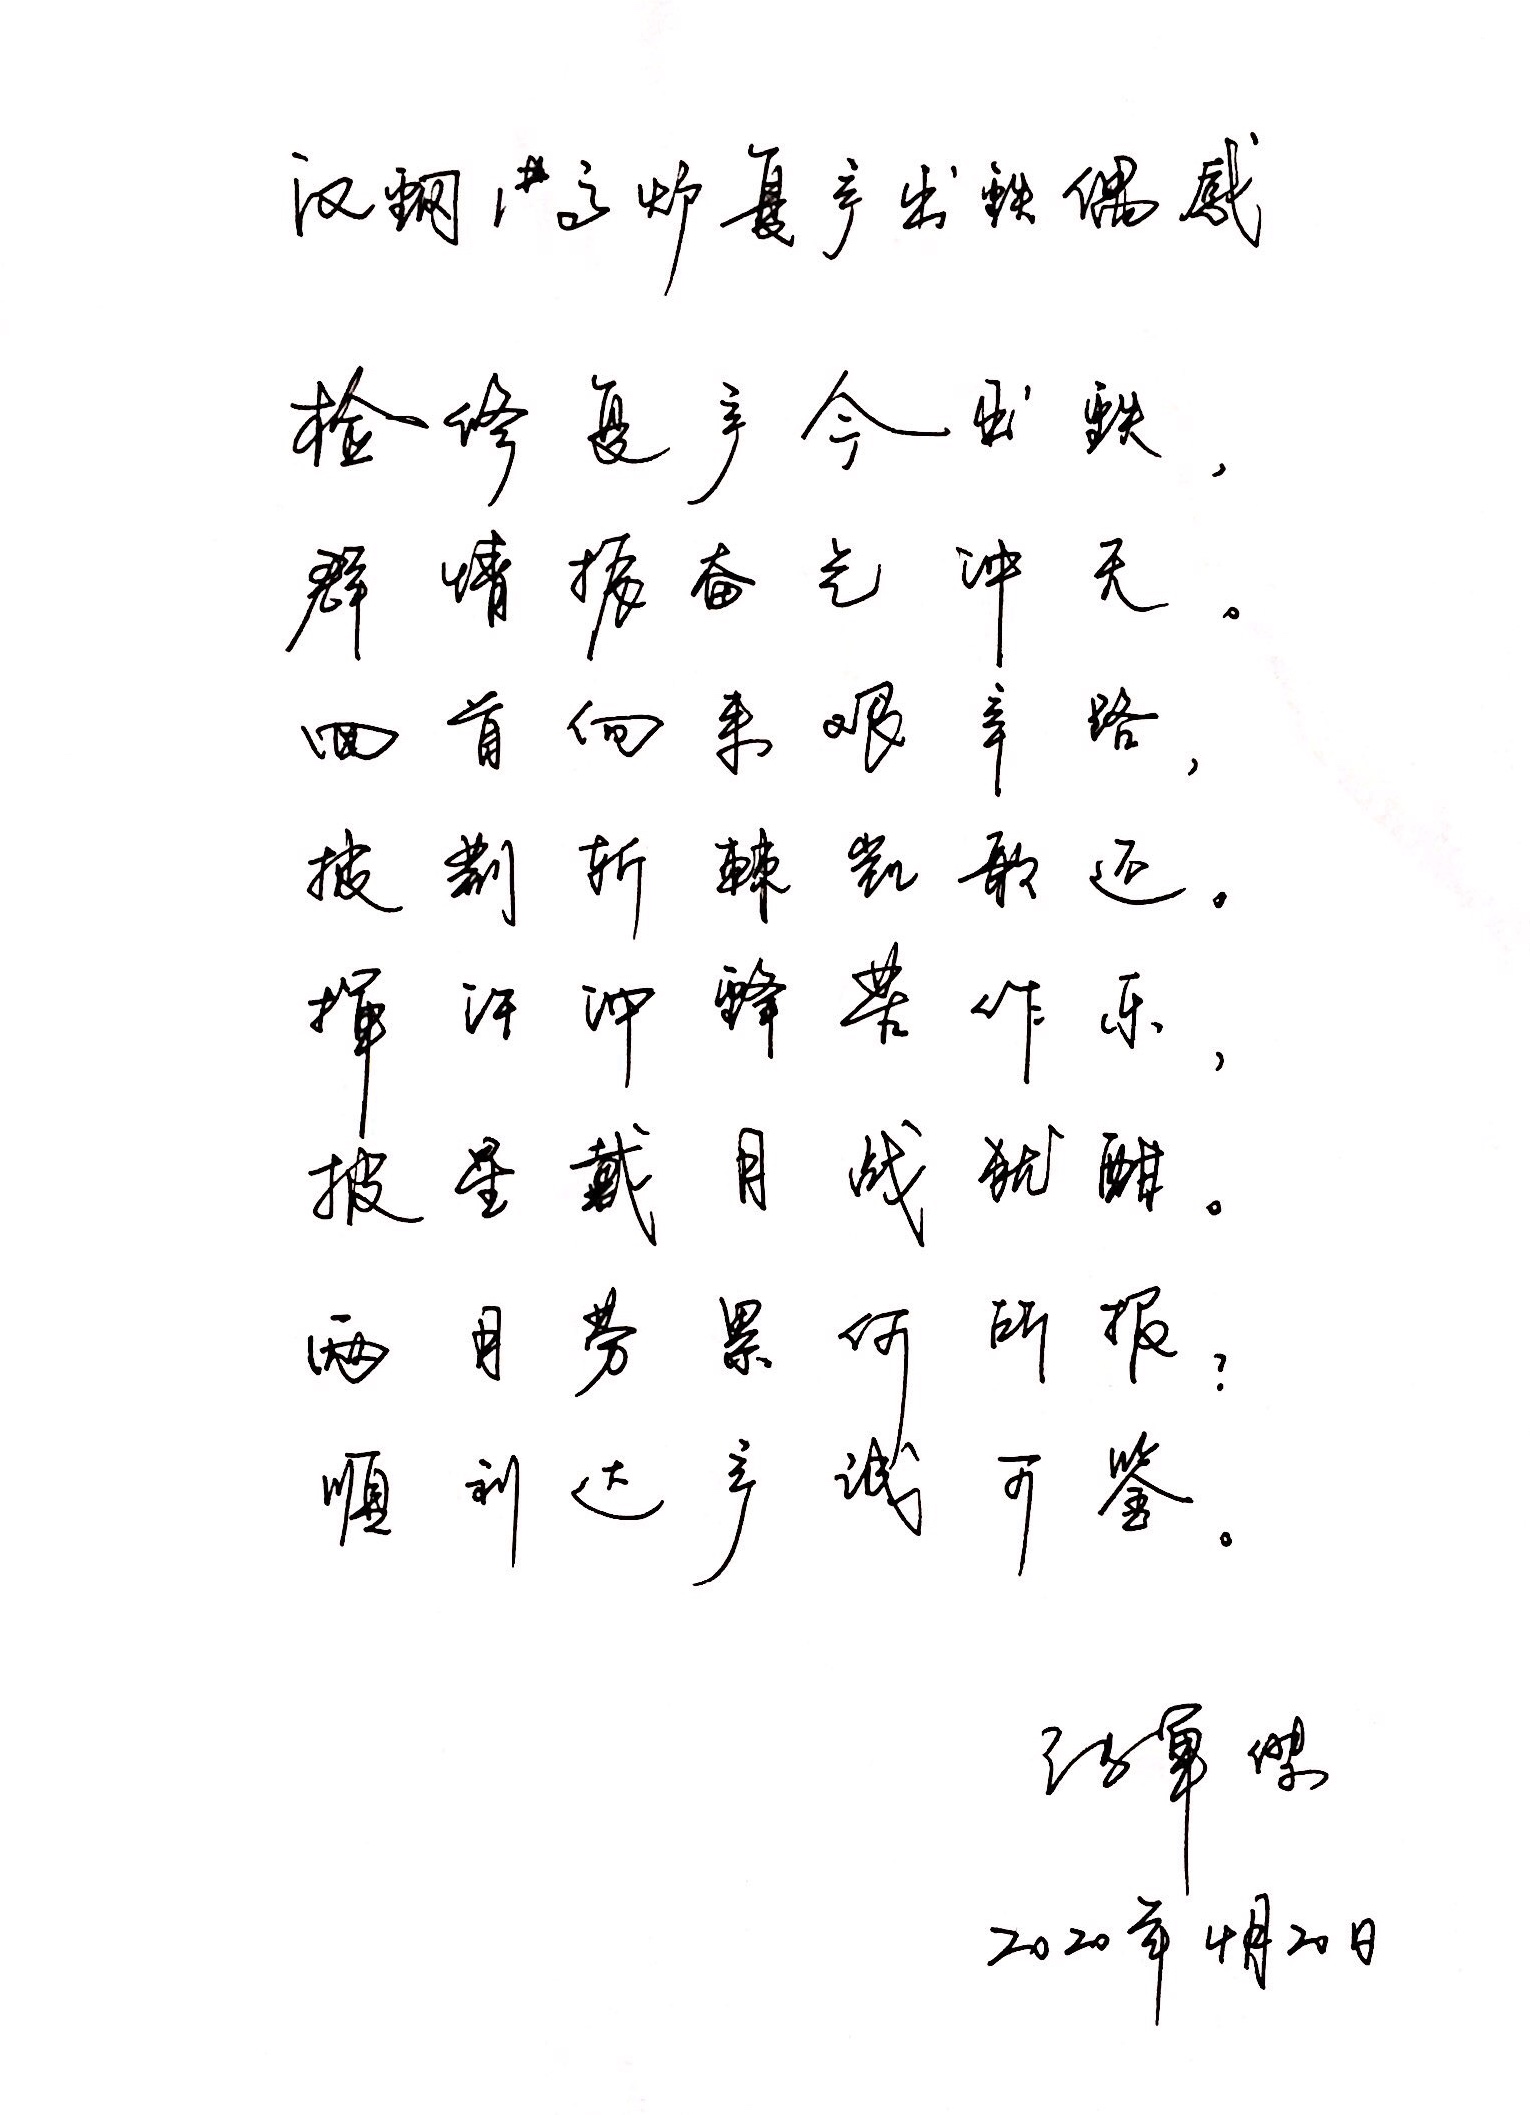 汉钢1#高炉复产出铁偶感
检修复产今出铁，
群情振奋气冲天。
回首向来艰辛路，
披荆斩棘凯歌还。
挥汗冲锋苦作乐，
披星戴月战犹酣。
两月劳累何所报？
顺利达产诚可鉴。
军杰
2020年4月20日